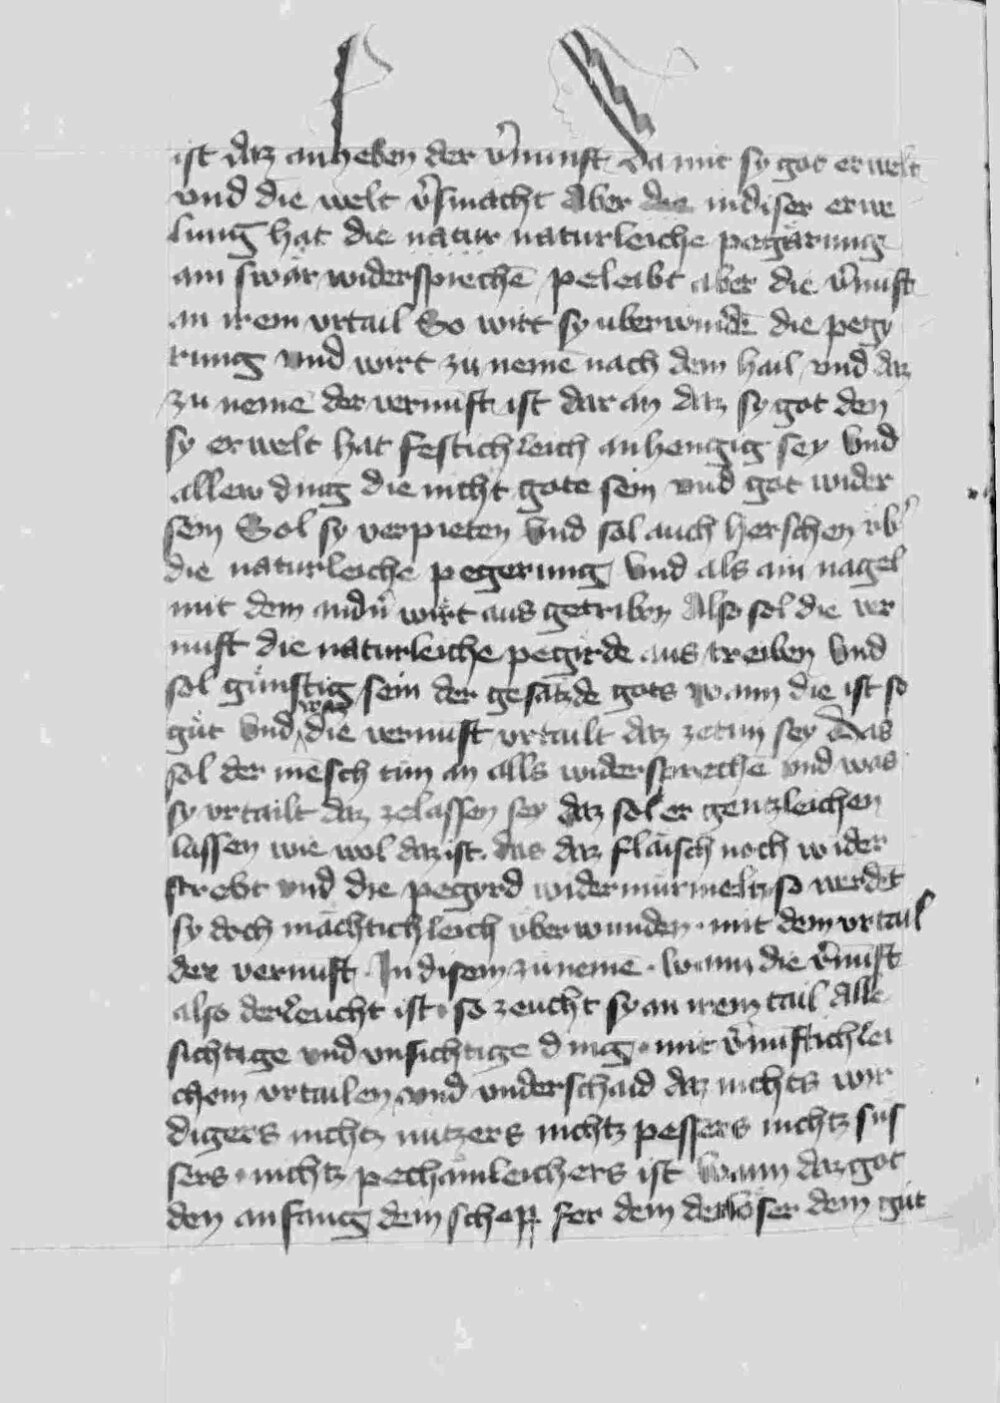 ist daz anheben der v̄nunft da mit sy got erwelt
vnd die welt v̄smacht Aber die in diser erwe
lung hat die natur naturleiche pegärung
ain swär widersprechē peleibt aber die v̄nuft
an irem vrtail So wirt sy vberwindē die pegy
rung vnd wirt zu nemē nach dem hail vnd daz
zu nemē der vernuft ist dar an daz sy got den
sy erwelt hat festichleich anhengig sey vnd
allew ding die nicht gote sein vnd got wider
sein Sol sy verpieten vnd sol auch herschen vb̄
die naturleiche pegerung vnd als ain nagel
mit dem andn̄ wirt aus getriben Also sol die ver
nuft die naturleiche pegirde aus treiben vnd
sol günstig sein der gesätzde gots wann die ist so
güt vnd was die vernuft vrtailt daz zetun sey Das
sol der mēsch tun an alls widersprechē vnd was
sy vrtailt daz zelassen sey daz sol er gentzleichen
lassen wie wol daz ist das daz fläisch noch wider
strebt vnd die pegyrd widermürmelt so werdēt
sy doch mächtichleich vberwunden · mit dem vrtail
der vernuft · In disem zunemē · wann die v̄nuft
also derleucht ist · so zeucht sy an irem tail Alle
sichtige vnd vnsichtige ding · mit v̄nuftichlei
chem vrtailen vnd vnderschaid daz nichts wir
digers nichtz nutzers nichtz pessers nichtz süs
sers · nichtz pechämleichers ist wann daz got
den anfang dem schepfer dem derlöser dem güt